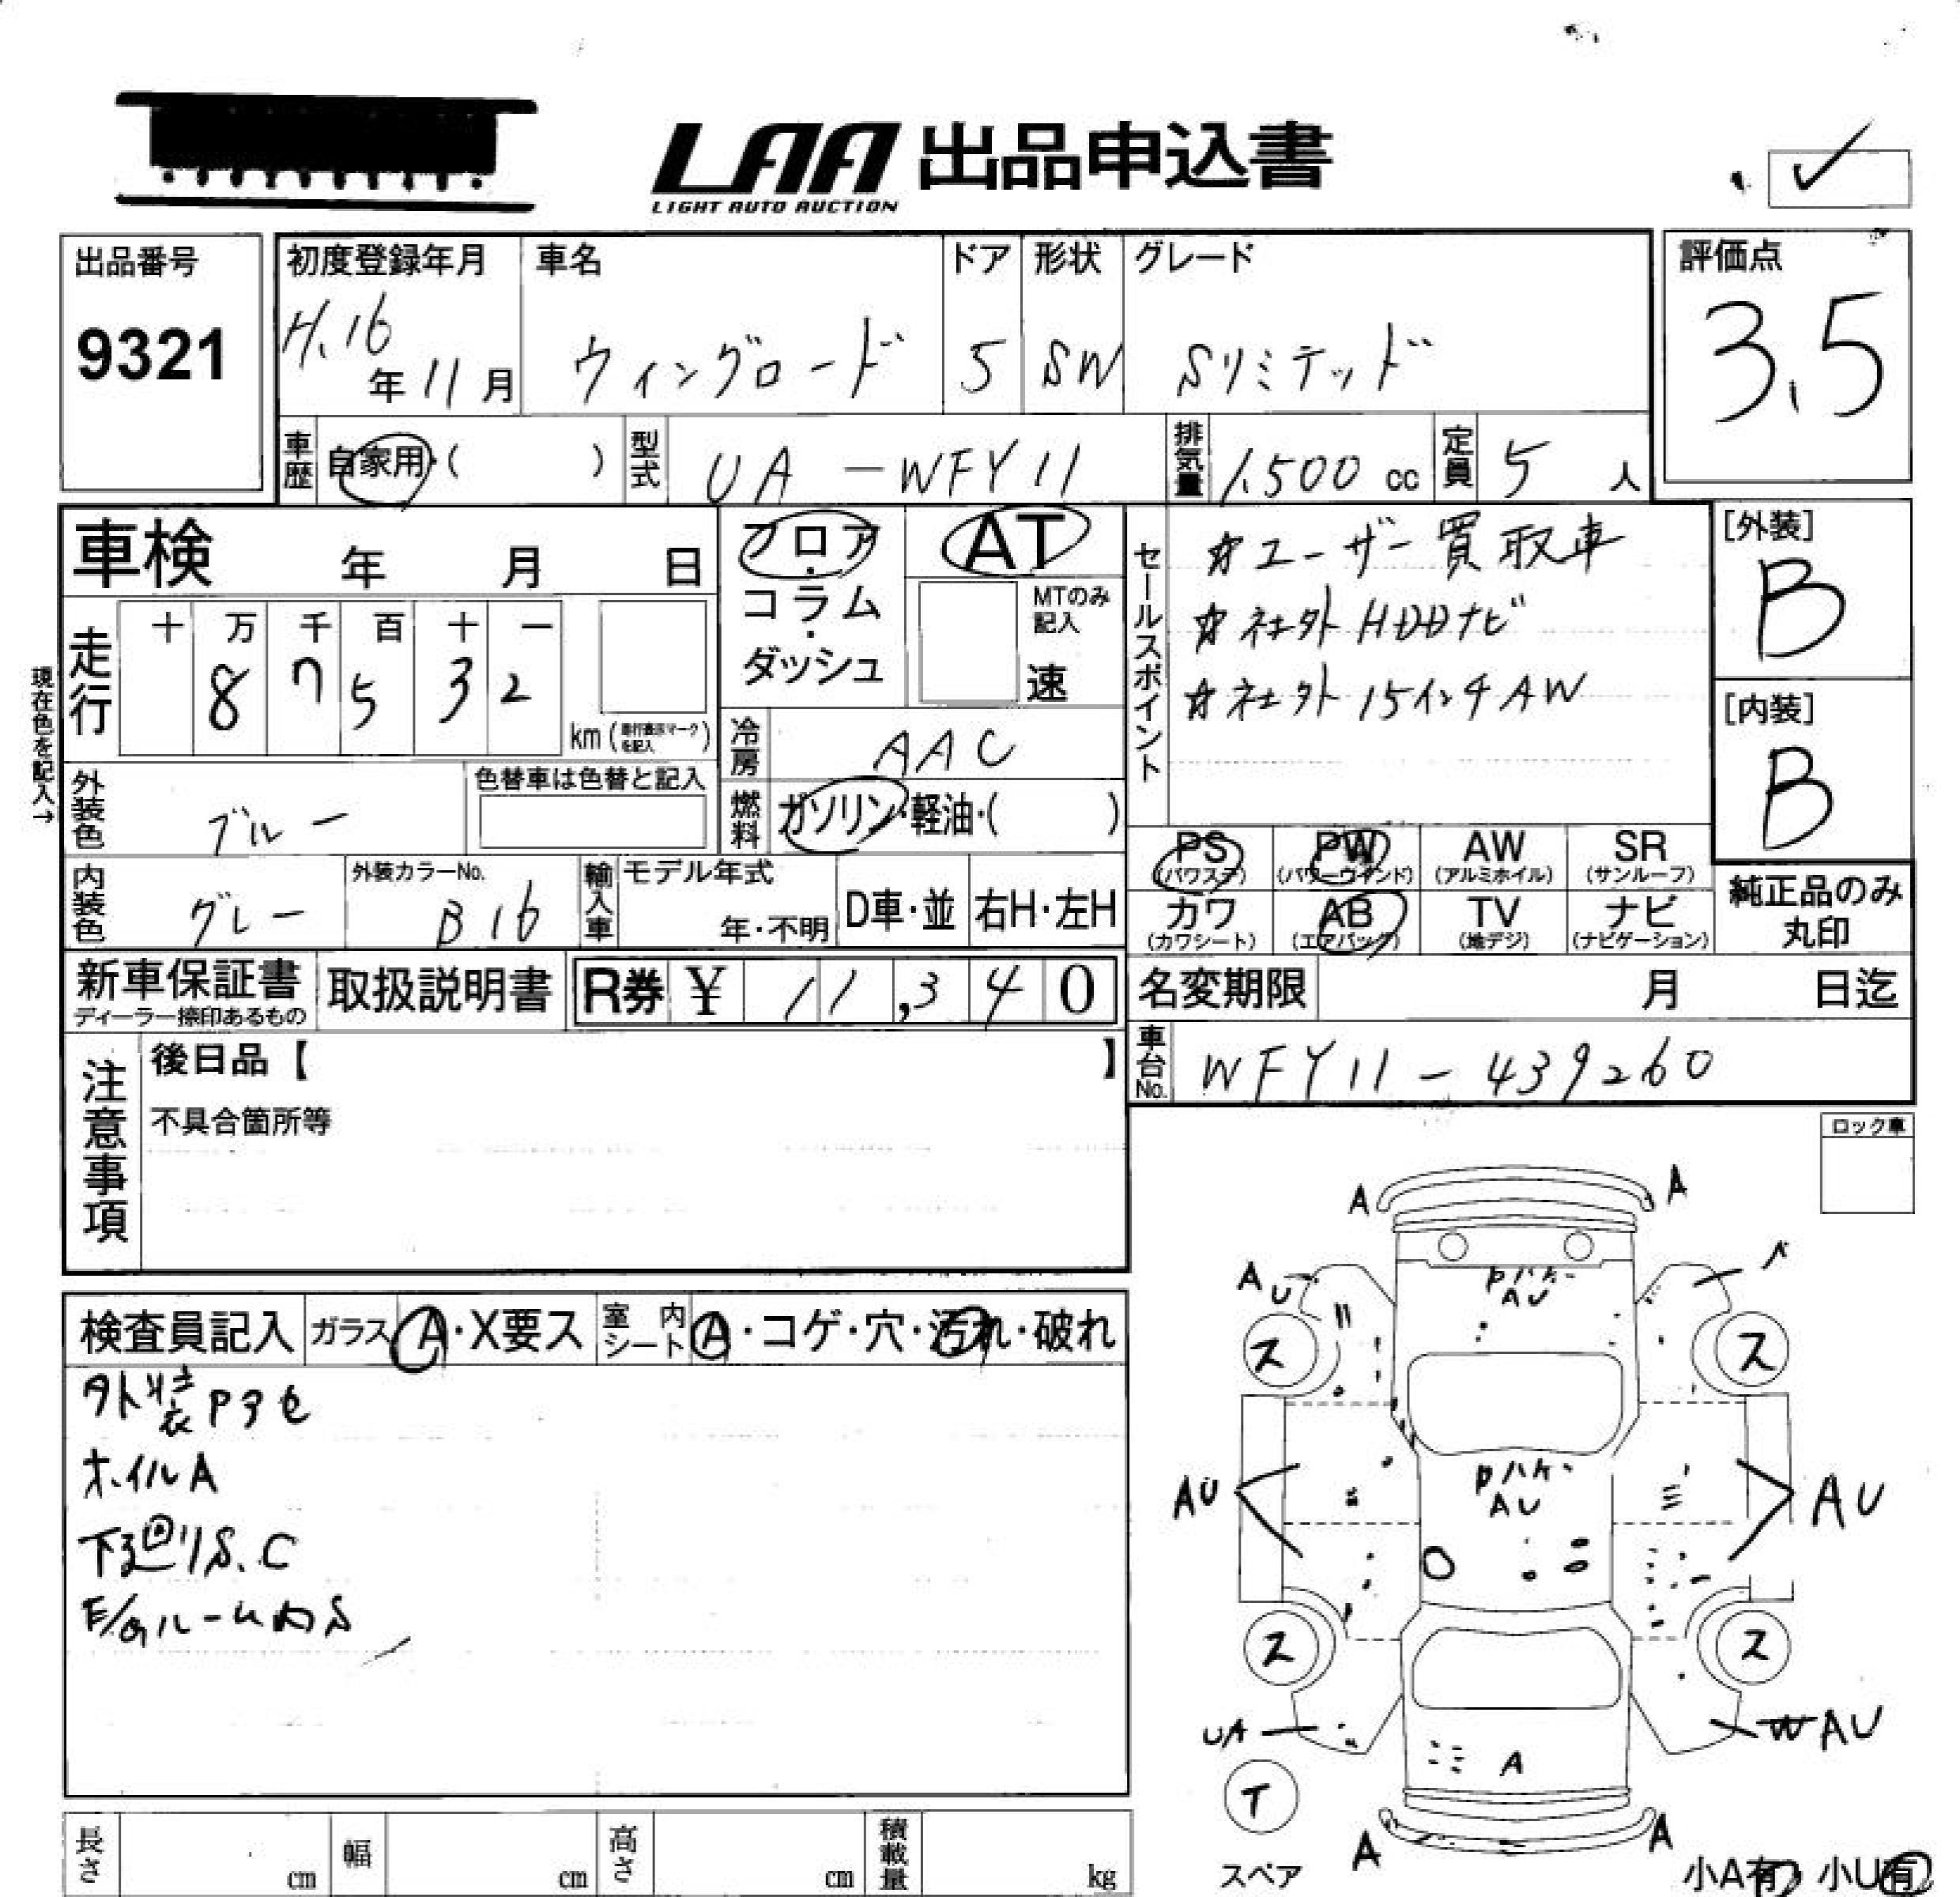 LAA 出品申込書
LIGHT AUTO AUCTION
出品番号
9321
初度登録年月
H.16年11月
車名
ウィングロード
ドア
5
形状
SW
グレード
Sリミテッド
評価点
3.5
車歴 自家用・( )
型式 UA-WFY11
排気量 1,500 cc
定員 5 人
車検 年 月 日
フロア・コラム・ダッシュ
AT
MTのみ記入
速
セールスポイント
☆ユーザー買取車
☆社外HDDナビ
☆社外15インチAW
[外装]
B
[内装]
B
現在色を記入→
走行
十 万 千 百 十 一
8 7 5 3 2
km (走行表示マークを記入)
冷房 AAC
燃料 ガソリン・軽油・( )
外装色 ブルー
色替車は色替と記入
内装色 グレー
外装カラーNo.
B16
輸入車 モデル年式
年・不明
D車・並
右H・左H
PS (パワステ)
PW (パワーウインド)
AW (アルミホイル)
SR (サンルーフ)
カワ (カワシート)
AB (エアバック)
TV (地デジ)
ナビ (ナビゲーション)
純正品のみ
丸印
新車保証書
ディーラー捺印あるもの
取扱説明書
R券 ¥ 11,340
名変期限 月 日迄
車台No. WFY11-439260
注意事項
後日品【 】
不具合箇所等
ロック車
検査員記入
ガラス A・X要ス
室内シート A・コゲ・穴・汚れ・破れ
外装Pアセ
ホイルA
下廻りS.C
E/gルーム内S
A A
AU
Pハケ
AU
ス ス
AU
Pハケ
AU
AU
ス ス
UA
WAU
A
T
スペア
A A
小A有 小U有
長さ cm
幅 cm
高さ cm
積載量 kg